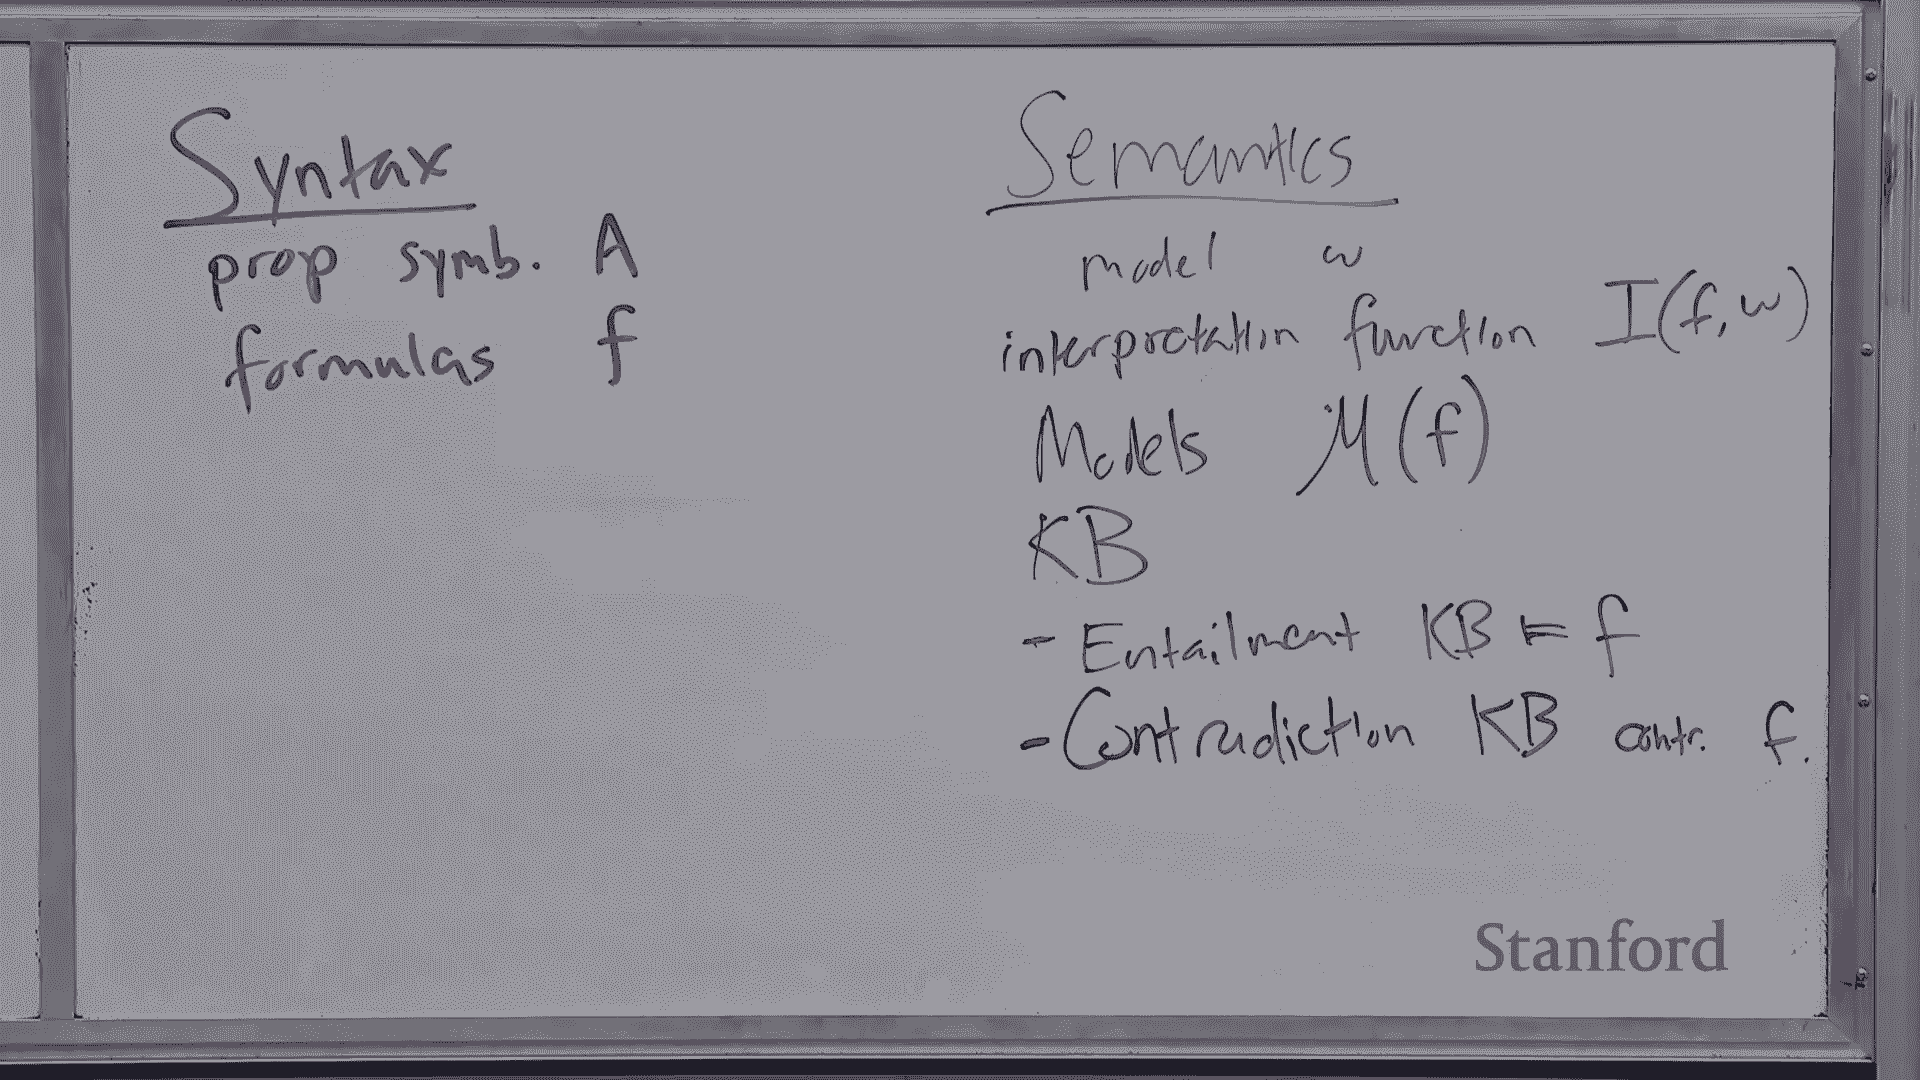 Syntax
prop symb. A
formulas f
Semantics
model w
interpretation function I(f,w)
Models M(f)
KB
- Entailment KB ⊨ f
- Contradiction KB contr. f.
Stanford